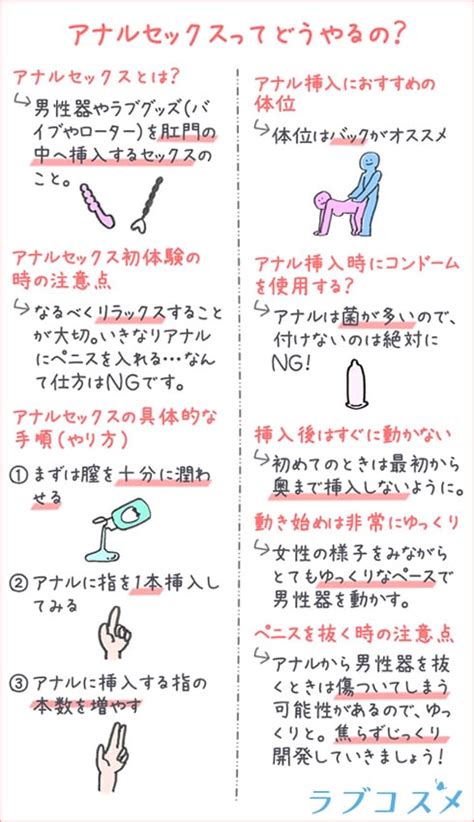 アナルセックスってどうやるの?
アナルセックスとは?
男性器やラブグッズ(バ
イブやローター)を肛門の
中へ挿入するセックスの
こと。
アナルセックス初体験の
時の注意点
なるべくリラックスすること
が大切。いきなりアナル
にペニスを入れる…なん
て仕方はNGです。
アナルセックスの具体的な
手順(やり方)
① まずは膣を十分に潤わ
せる
② アナルに指を1本挿入し
てみる
③ アナルに挿入する指の
本数を増やす
アナル挿入におすすめの
体位
体位はバックがオススメ
アナル挿入時にコンドーム
を使用する?
アナルは菌が多いので、
付けないのは絶対に
NG!
挿入後はすぐに動かない
初めてのときは最初から
奥まで挿入しないように。
動き始めは非常にゆっくり
女性の様子をみながら
とてもゆっくりなペースで
男性器を動かす。
ペニスを抜く時の注意点
アナルから男性器を抜
くときは傷ついてしまう
可能性があるので、ゆっ
くりと。焦らずじっくり
開発していきましょう!
ラブコスメ